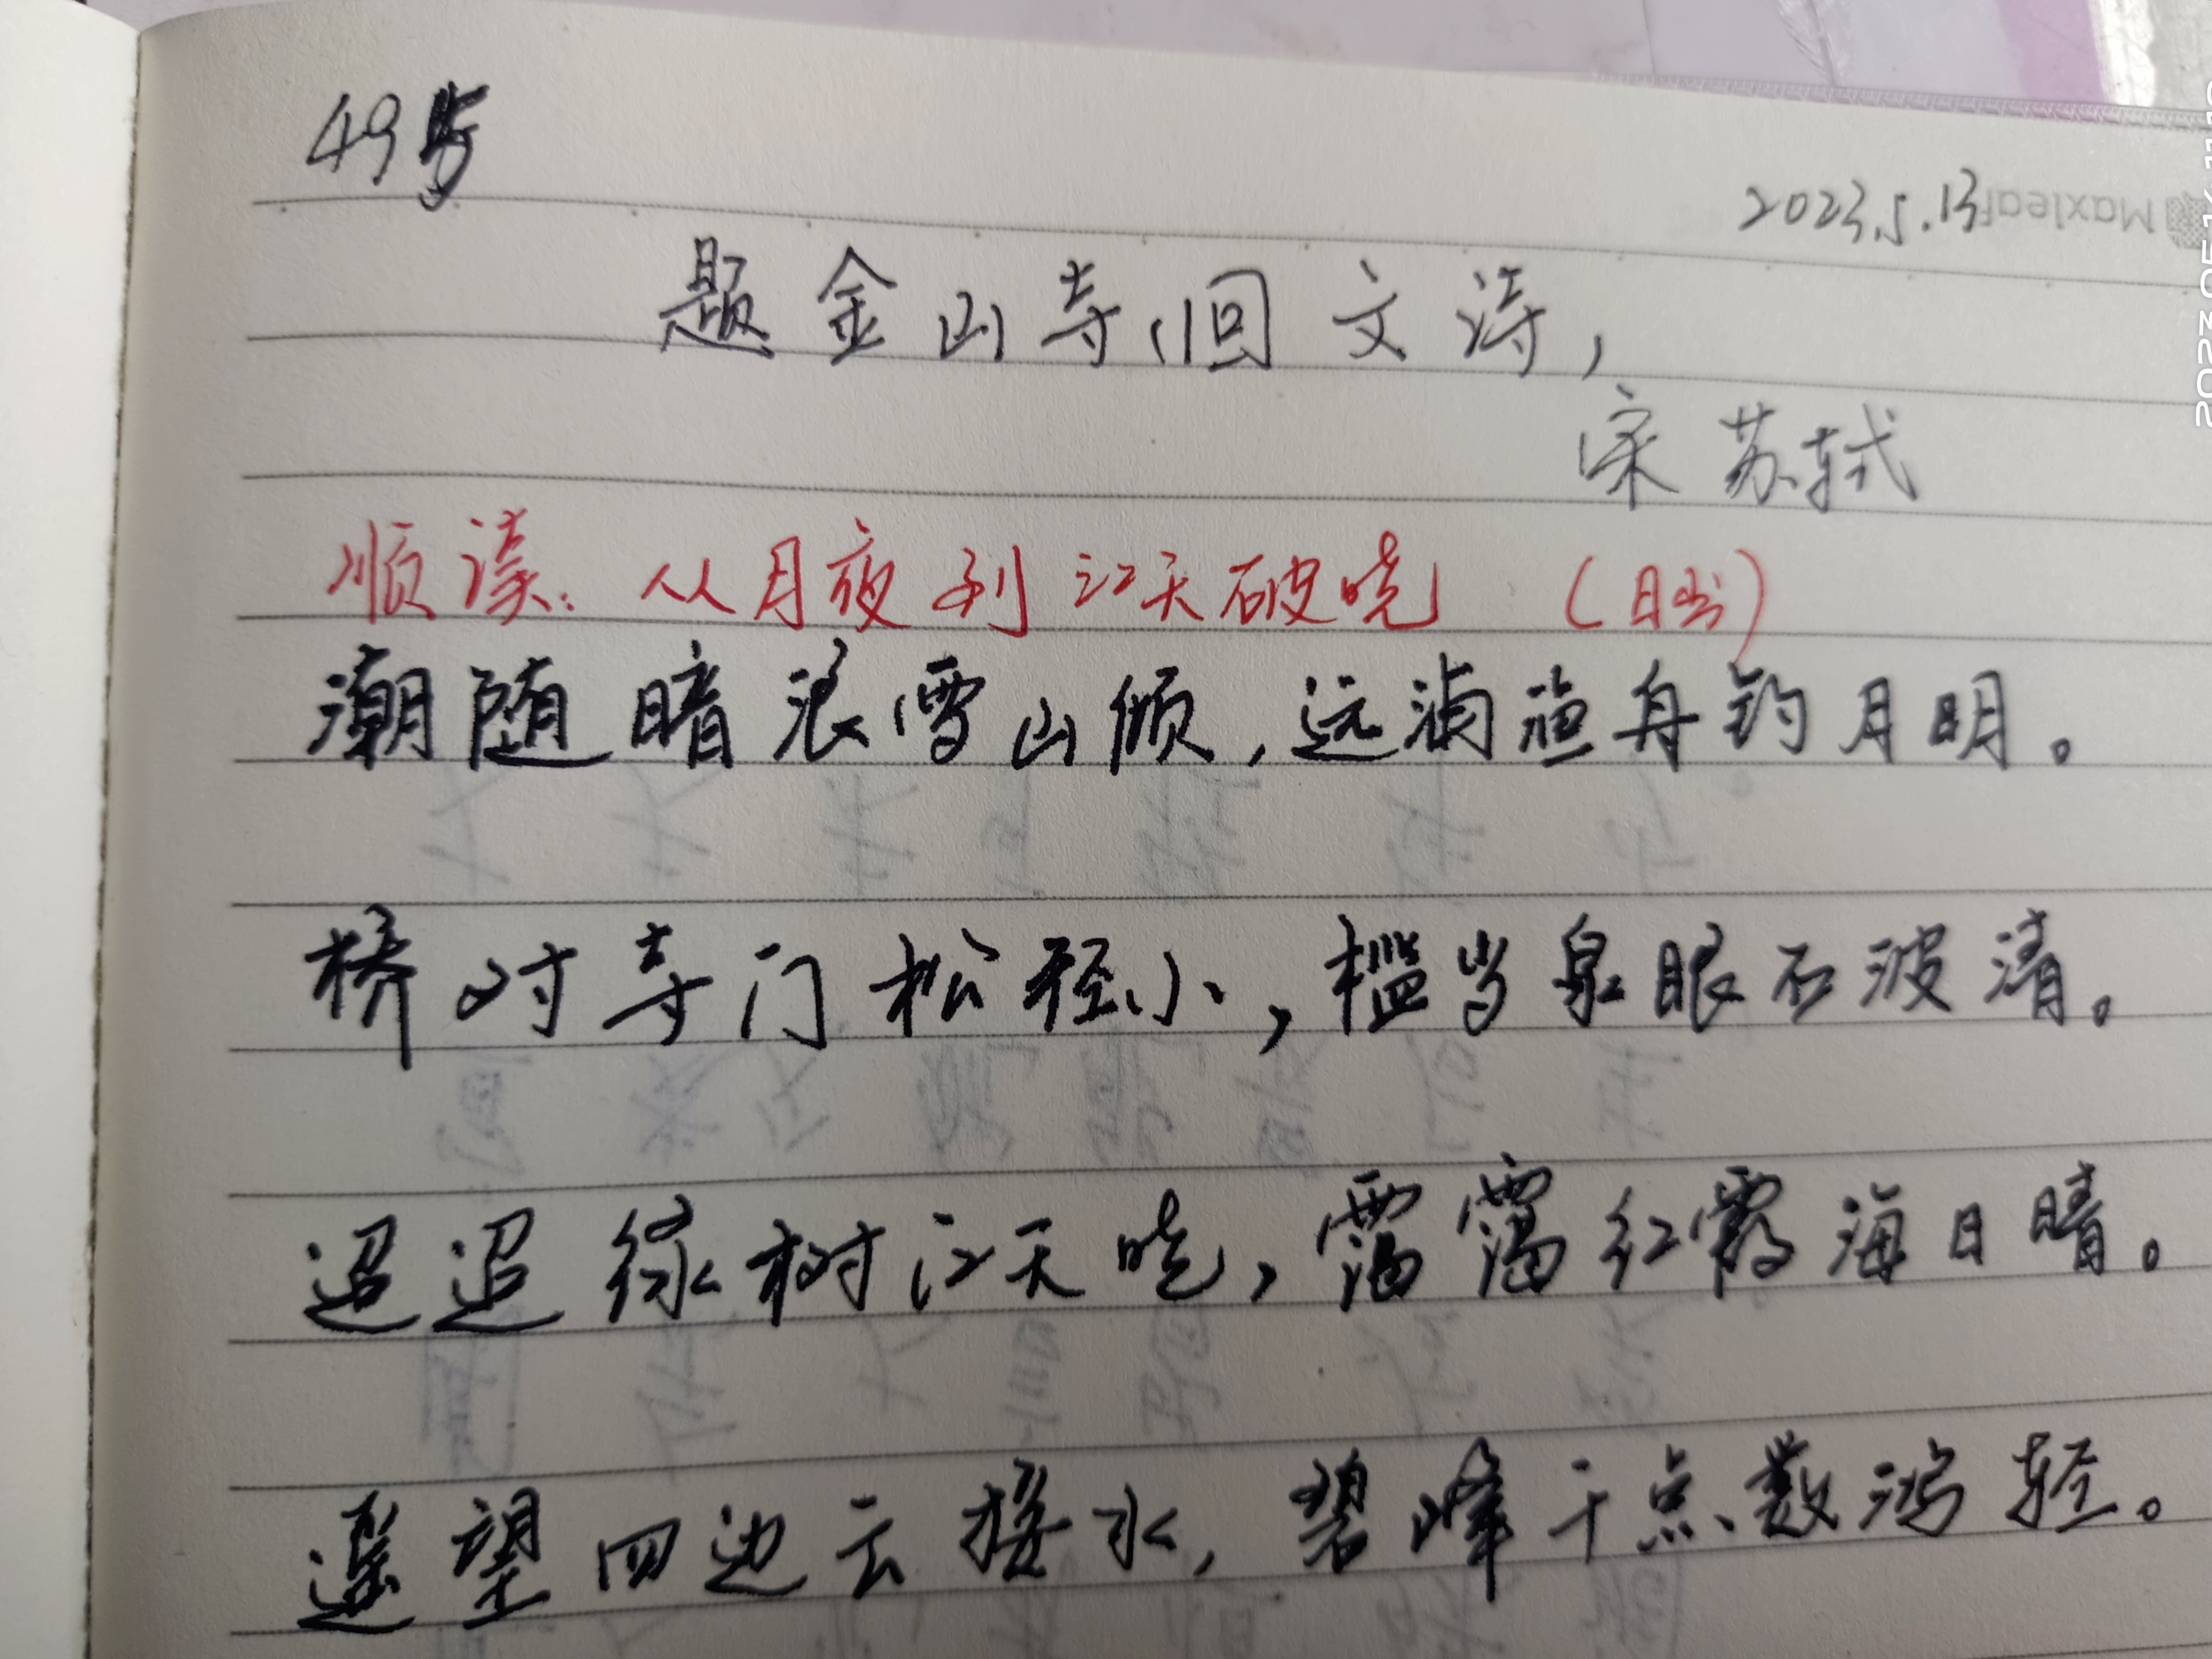 49号
2023.5.13
Maxleaf
题金山寺(回文诗)
宋 苏轼
顺读:从月夜到江天破晓 (日出)
潮随暗浪雪山倾,远浦渔舟钓月明。
桥对寺门松径小,槛当泉眼石波清。
迢迢绿树江天晓,霭霭红霞海日晴。
遥望四边云接水,碧峰千点数鸿轻。